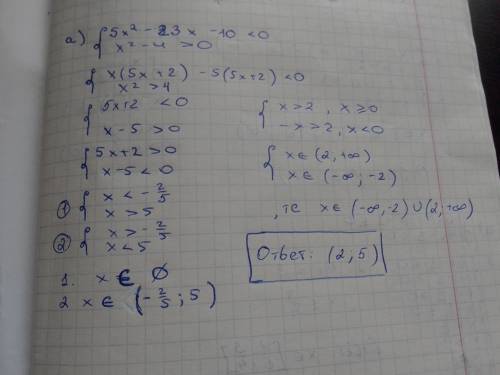 а) { 5x² - 23x - 10 < 0
x² - 4 > 0
{ x(5x+2) - 5(5x+2) < 0
x² > 4
{ 5x+2 < 0
x - 5 > 0
{ 5x+2 > 0
x - 5 < 0
① { x < -2/5
x > 5
② { x > -2/5
x < 5
1. x ∈ ∅
2 x ∈ (-2/5; 5)
{ x > 2, x ≥ 0
-x > 2, x < 0
{ x ∈ (2, +∞)
x ∈ (-∞; -2)
, те x ∈ (-∞, -2) ∪ (2; +∞)
Ответ: (2, 5)